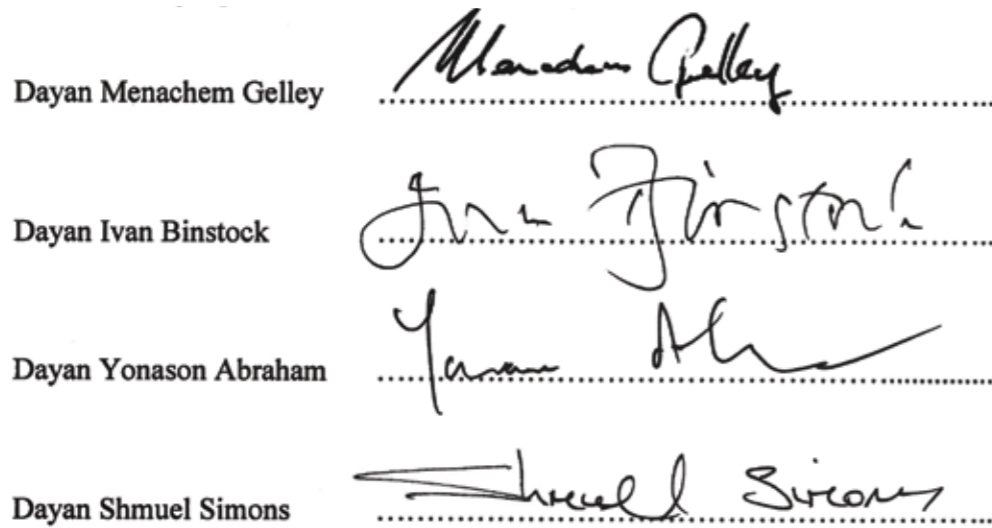 Dayan Menachem Gelley Menachem Gelley
Dayan Ivan Binstock Ivan Binstock
Dayan Yonason Abraham
Dayan Shmuel Simons Shmuel Simons